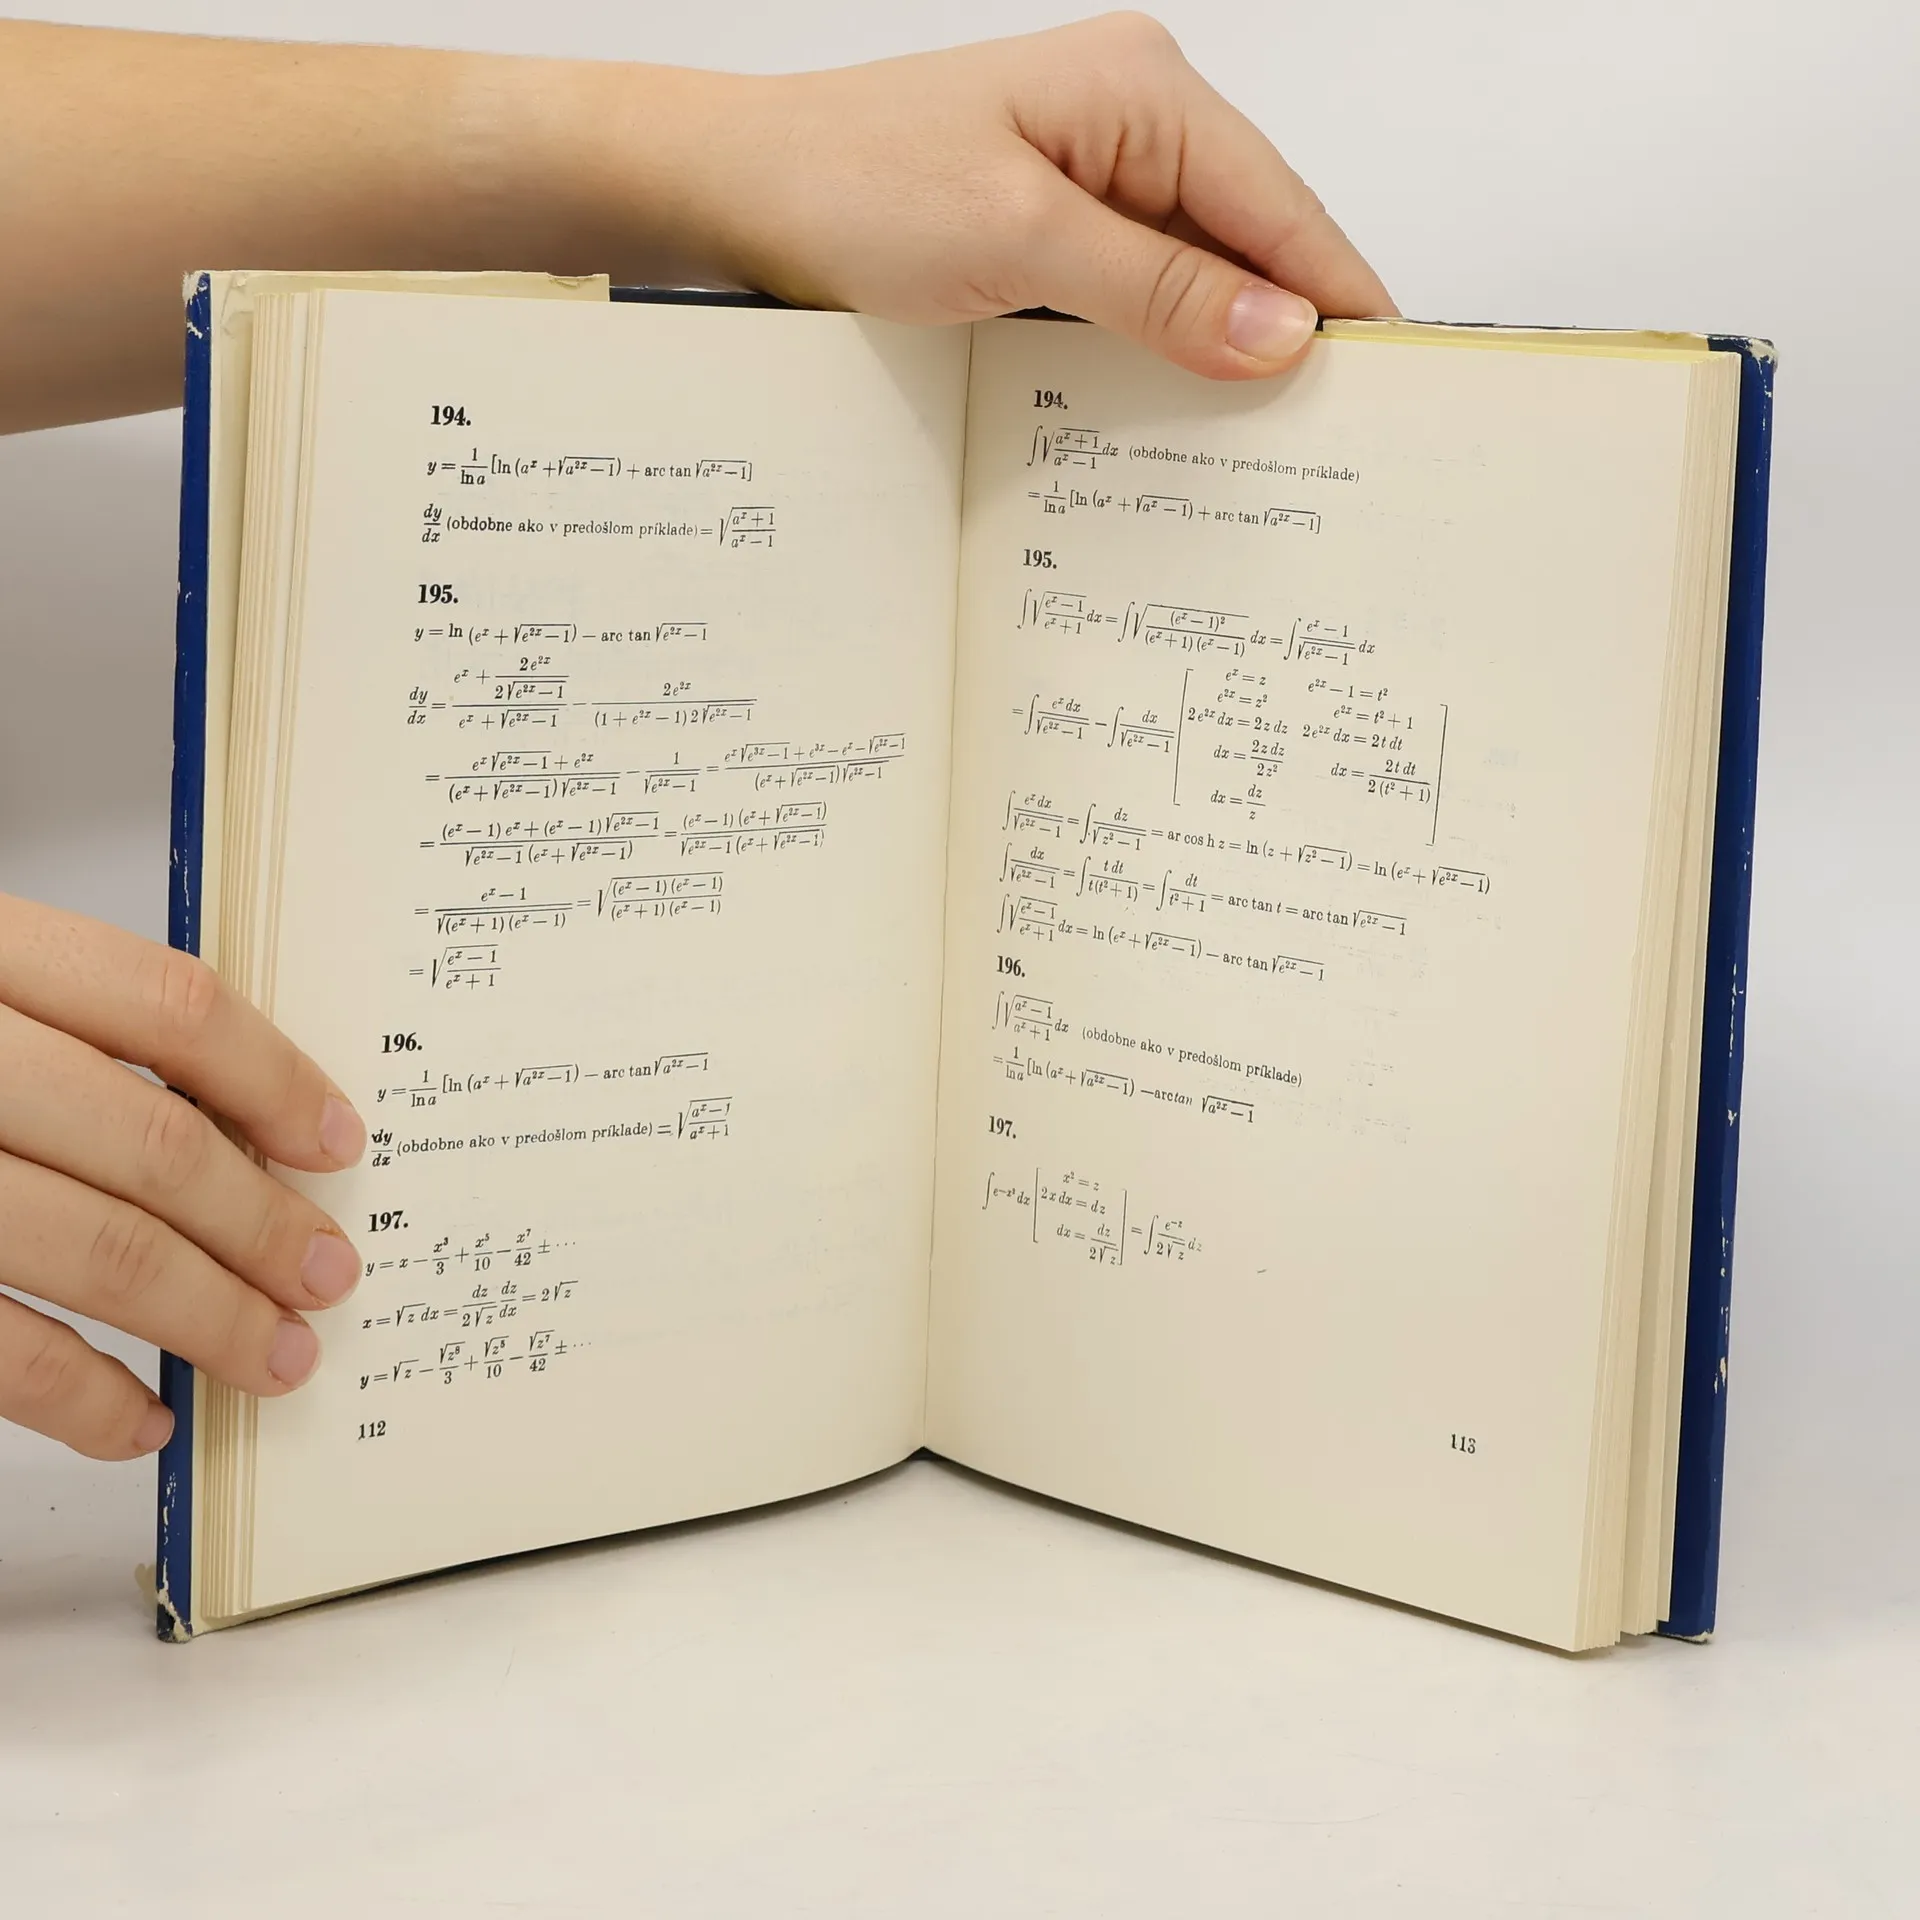 194.
y = 1/ln a [ln (aˣ + √(a²ˣ − 1)) + arc tan √(a²ˣ − 1)]
dy/dx (obdobne ako v predošlom príklade) = √((aˣ + 1)/(aˣ − 1))
195.
y = ln (eˣ + √(e²ˣ − 1)) − arc tan √(e²ˣ − 1)
dy/dx = (eˣ + 2e²ˣ/(2√(e²ˣ − 1)))/(eˣ + √(e²ˣ − 1)) − 2e²ˣ/((1 + e²ˣ − 1) 2√(e²ˣ − 1))
= (eˣ√(e²ˣ − 1) + e²ˣ)/((eˣ + √(e²ˣ − 1))√(e²ˣ − 1)) − 1/√(e²ˣ − 1) = (eˣ√(e³ˣ − 1) + e³ˣ − eˣ − √(e²ˣ − 1))/((eˣ + √(e²ˣ − 1))√(e²ˣ − 1))
= ((eˣ − 1) eˣ + (eˣ − 1)√(e²ˣ − 1))/(√(e²ˣ − 1) (eˣ + √(e²ˣ − 1))) = ((eˣ − 1) (eˣ + √(e²ˣ − 1)))/(√(e²ˣ − 1) (eˣ + √(e²ˣ − 1)))
= (eˣ − 1)/√((eˣ + 1) (eˣ − 1)) = √(((eˣ − 1) (eˣ − 1))/((eˣ + 1) (eˣ − 1)))
= √((eˣ − 1)/(eˣ + 1))
196.
y = 1/ln a [ln (aˣ + √(a²ˣ − 1)) − arc tan √(a²ˣ − 1)
dy/dx (obdobne ako v predošlom príklade) = √((aˣ − 1)/(aˣ + 1))
197.
y = x − x³/3 + x⁵/10 − x⁷/42 ± ···
x = √z dx = dz/(2√z) dz/dx = 2√z
y = √z − √z³/3 + √z⁵/10 − √z⁷/42 ± ···
112
194.
∫√((aˣ + 1)/(aˣ − 1)) dx (obdobne ako v predošlom príklade)
= 1/ln a [ln (aˣ + √(aˣ − 1)) + arc tan √(a²ˣ − 1)]
195.
∫√((eˣ − 1)/(eˣ + 1)) dx = ∫√((eˣ − 1)²/((eˣ + 1) (eˣ − 1))) dx = ∫(eˣ − 1)/√(e²ˣ − 1) dx
= ∫eˣ dx/√(e²ˣ − 1) − ∫dx/√(e²ˣ − 1)
eˣ = z e²ˣ − 1 = t²
e²ˣ = z² e²ˣ = t² + 1
2e²ˣ dx = 2z dz 2e²ˣ dx = 2t dt
dx = 2z dz/2z² dx = 2t dt/(2 (t² + 1))
dx = dz/z
∫eˣ dx/√(e²ˣ − 1) = ∫dz/√(z² − 1) = ar cos h z = ln (z + √(z² − 1)) = ln (eˣ + √(e²ˣ − 1))
∫dx/√(e²ˣ − 1) = ∫t dt/(t(t² + 1)) = ∫dt/(t² + 1) = arc tan t = arc tan √(e²ˣ − 1)
∫√((eˣ − 1)/(eˣ + 1)) dx = ln (eˣ + √(e²ˣ − 1)) − arc tan √(e²ˣ − 1)
196.
∫√((aˣ − 1)/(aˣ + 1)) dx (obdobne ako v predošlom príklade)
= 1/ln a [ln (aˣ + √(a²ˣ − 1)) − arctan √(a²ˣ − 1)
197.
∫e^(−x²) dx [x² = z
2x dx = dz
dx = dz/(2√z)] = ∫e^(−z)/(2√z) dz
113